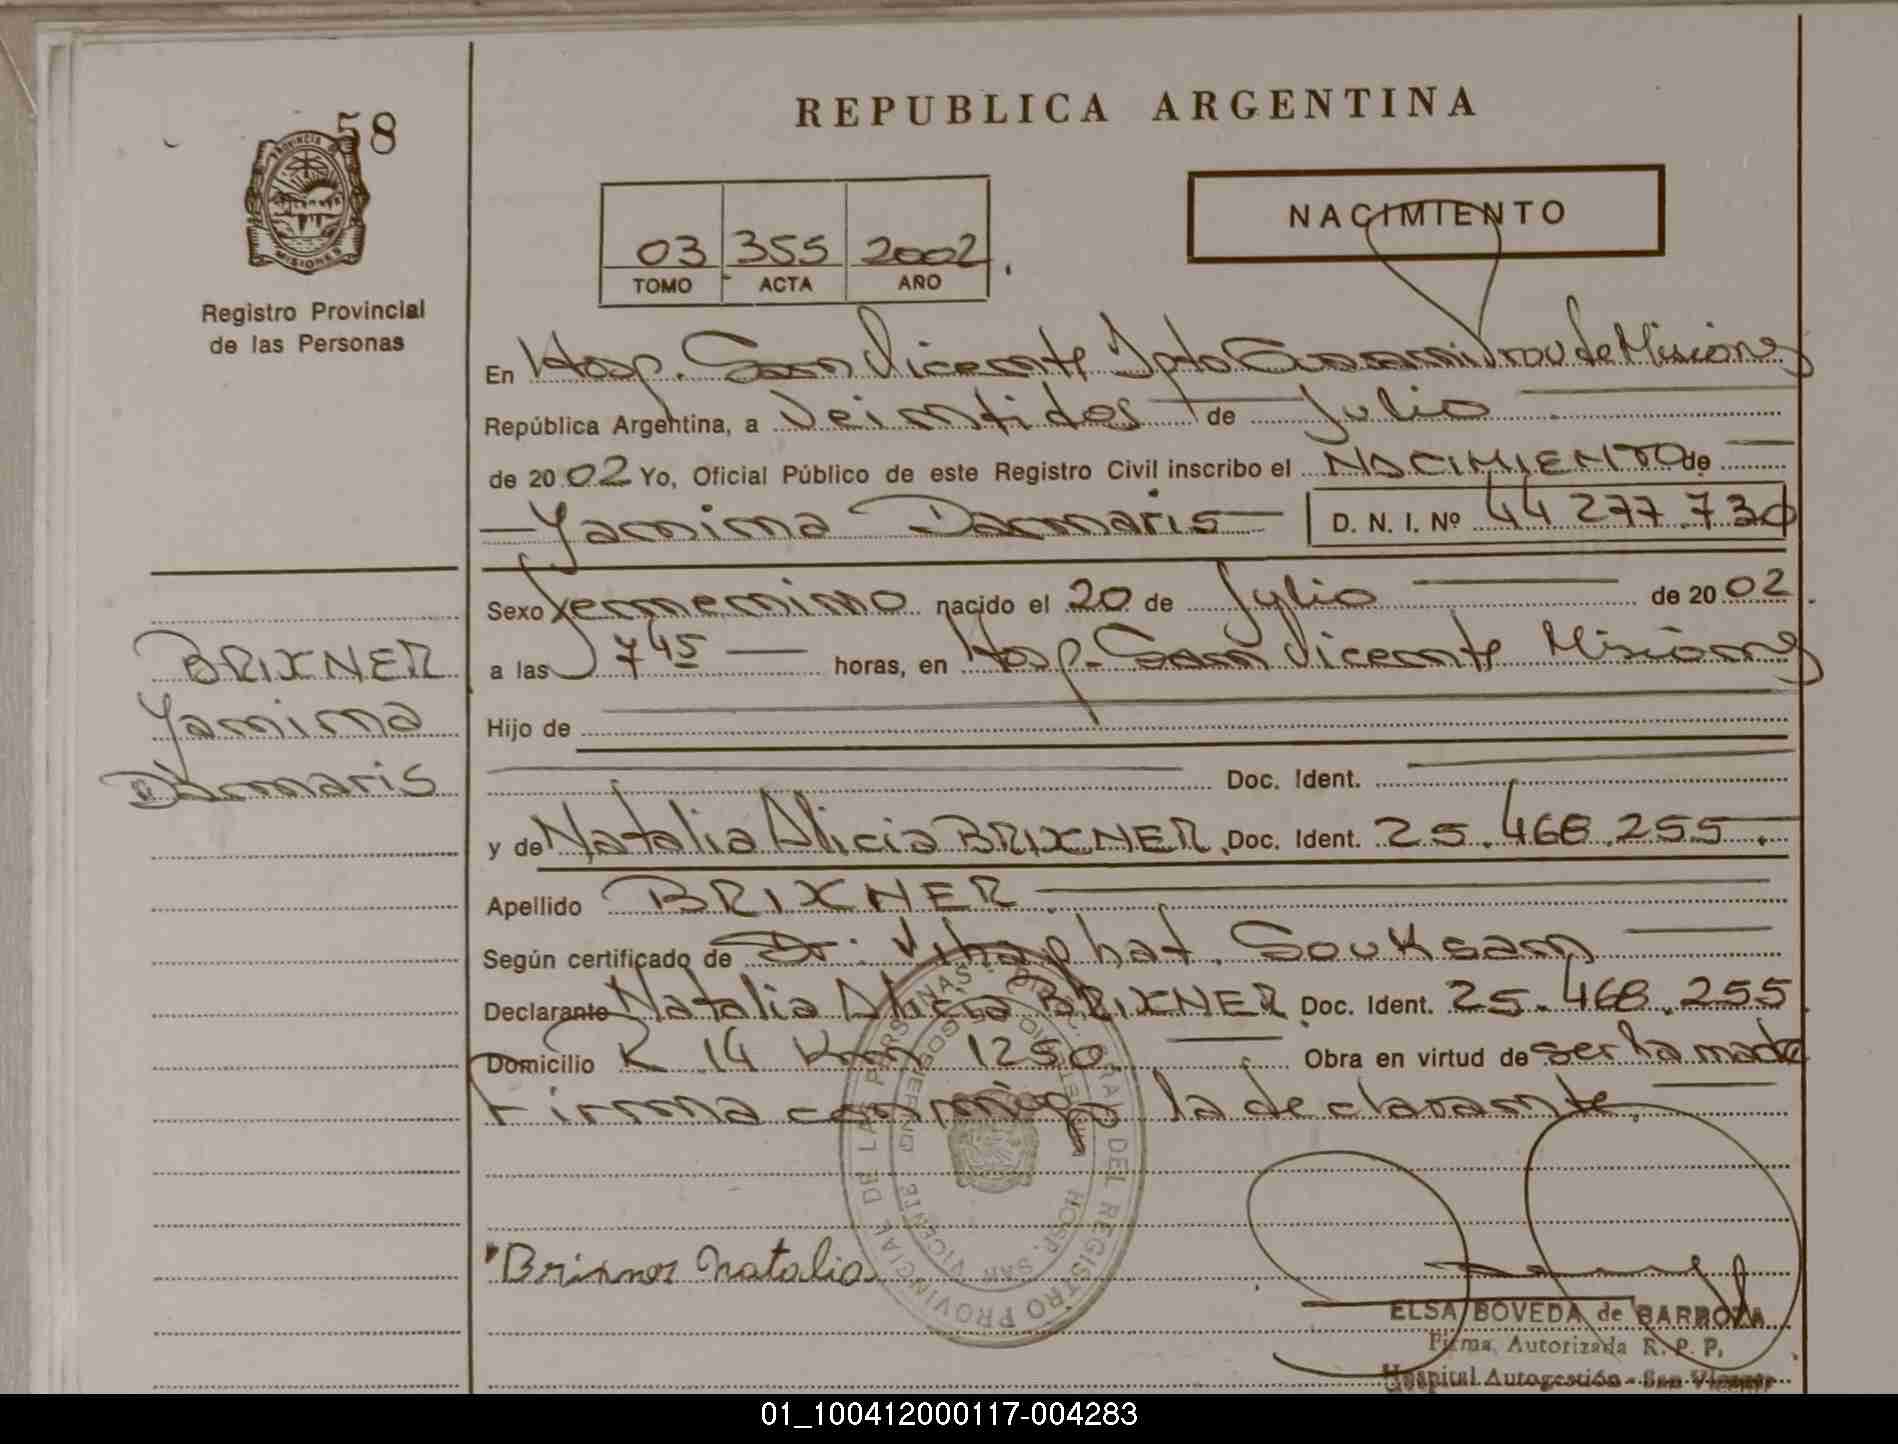 58
PROVINCIA D
MISIONES
Registro Provincial
de las Personas
REPUBLICA ARGENTINA
03 355 2002
TOMO ACTA AÑO
NACIMIENTO
En Hosp. San Vicente Dpto Guarani Prov de Misiones
República Argentina, a Veintidos de Julio
de 2002 Yo, Oficial Público de este Registro Civil inscribo el NACIMIENTO de
Yamima Damaris D. N. I. Nº 44 277.730
Sexo femenino nacido el 20 de Julio de 2002
a las 7 45 horas, en Hosp. San Vicente Misiones
Hijo de
Doc. Ident.
y de Natalia Alicia BRIXNER Doc. Ident. 25.468.255
Apellido BRIXNER
Según certificado de Dr: Souksam
Declarante Natalia Alicia BRIXNER Doc. Ident. 25.468.255
Domicilio R 14 Km 1250 Obra en virtud de ser la madre
Firma conmigo la declarante.
BRIXNER
Yamima
Damaris
REGISTRO PROVINCIAL DE LAS PERSONAS
HOSP. SAN VICENTE
Brixner Natalia
ELSA BOVEDA de BARBOZA
Firma Autorizada R. P. P.
Hospital Autogestión - San Vicente
01_100412000117-004283